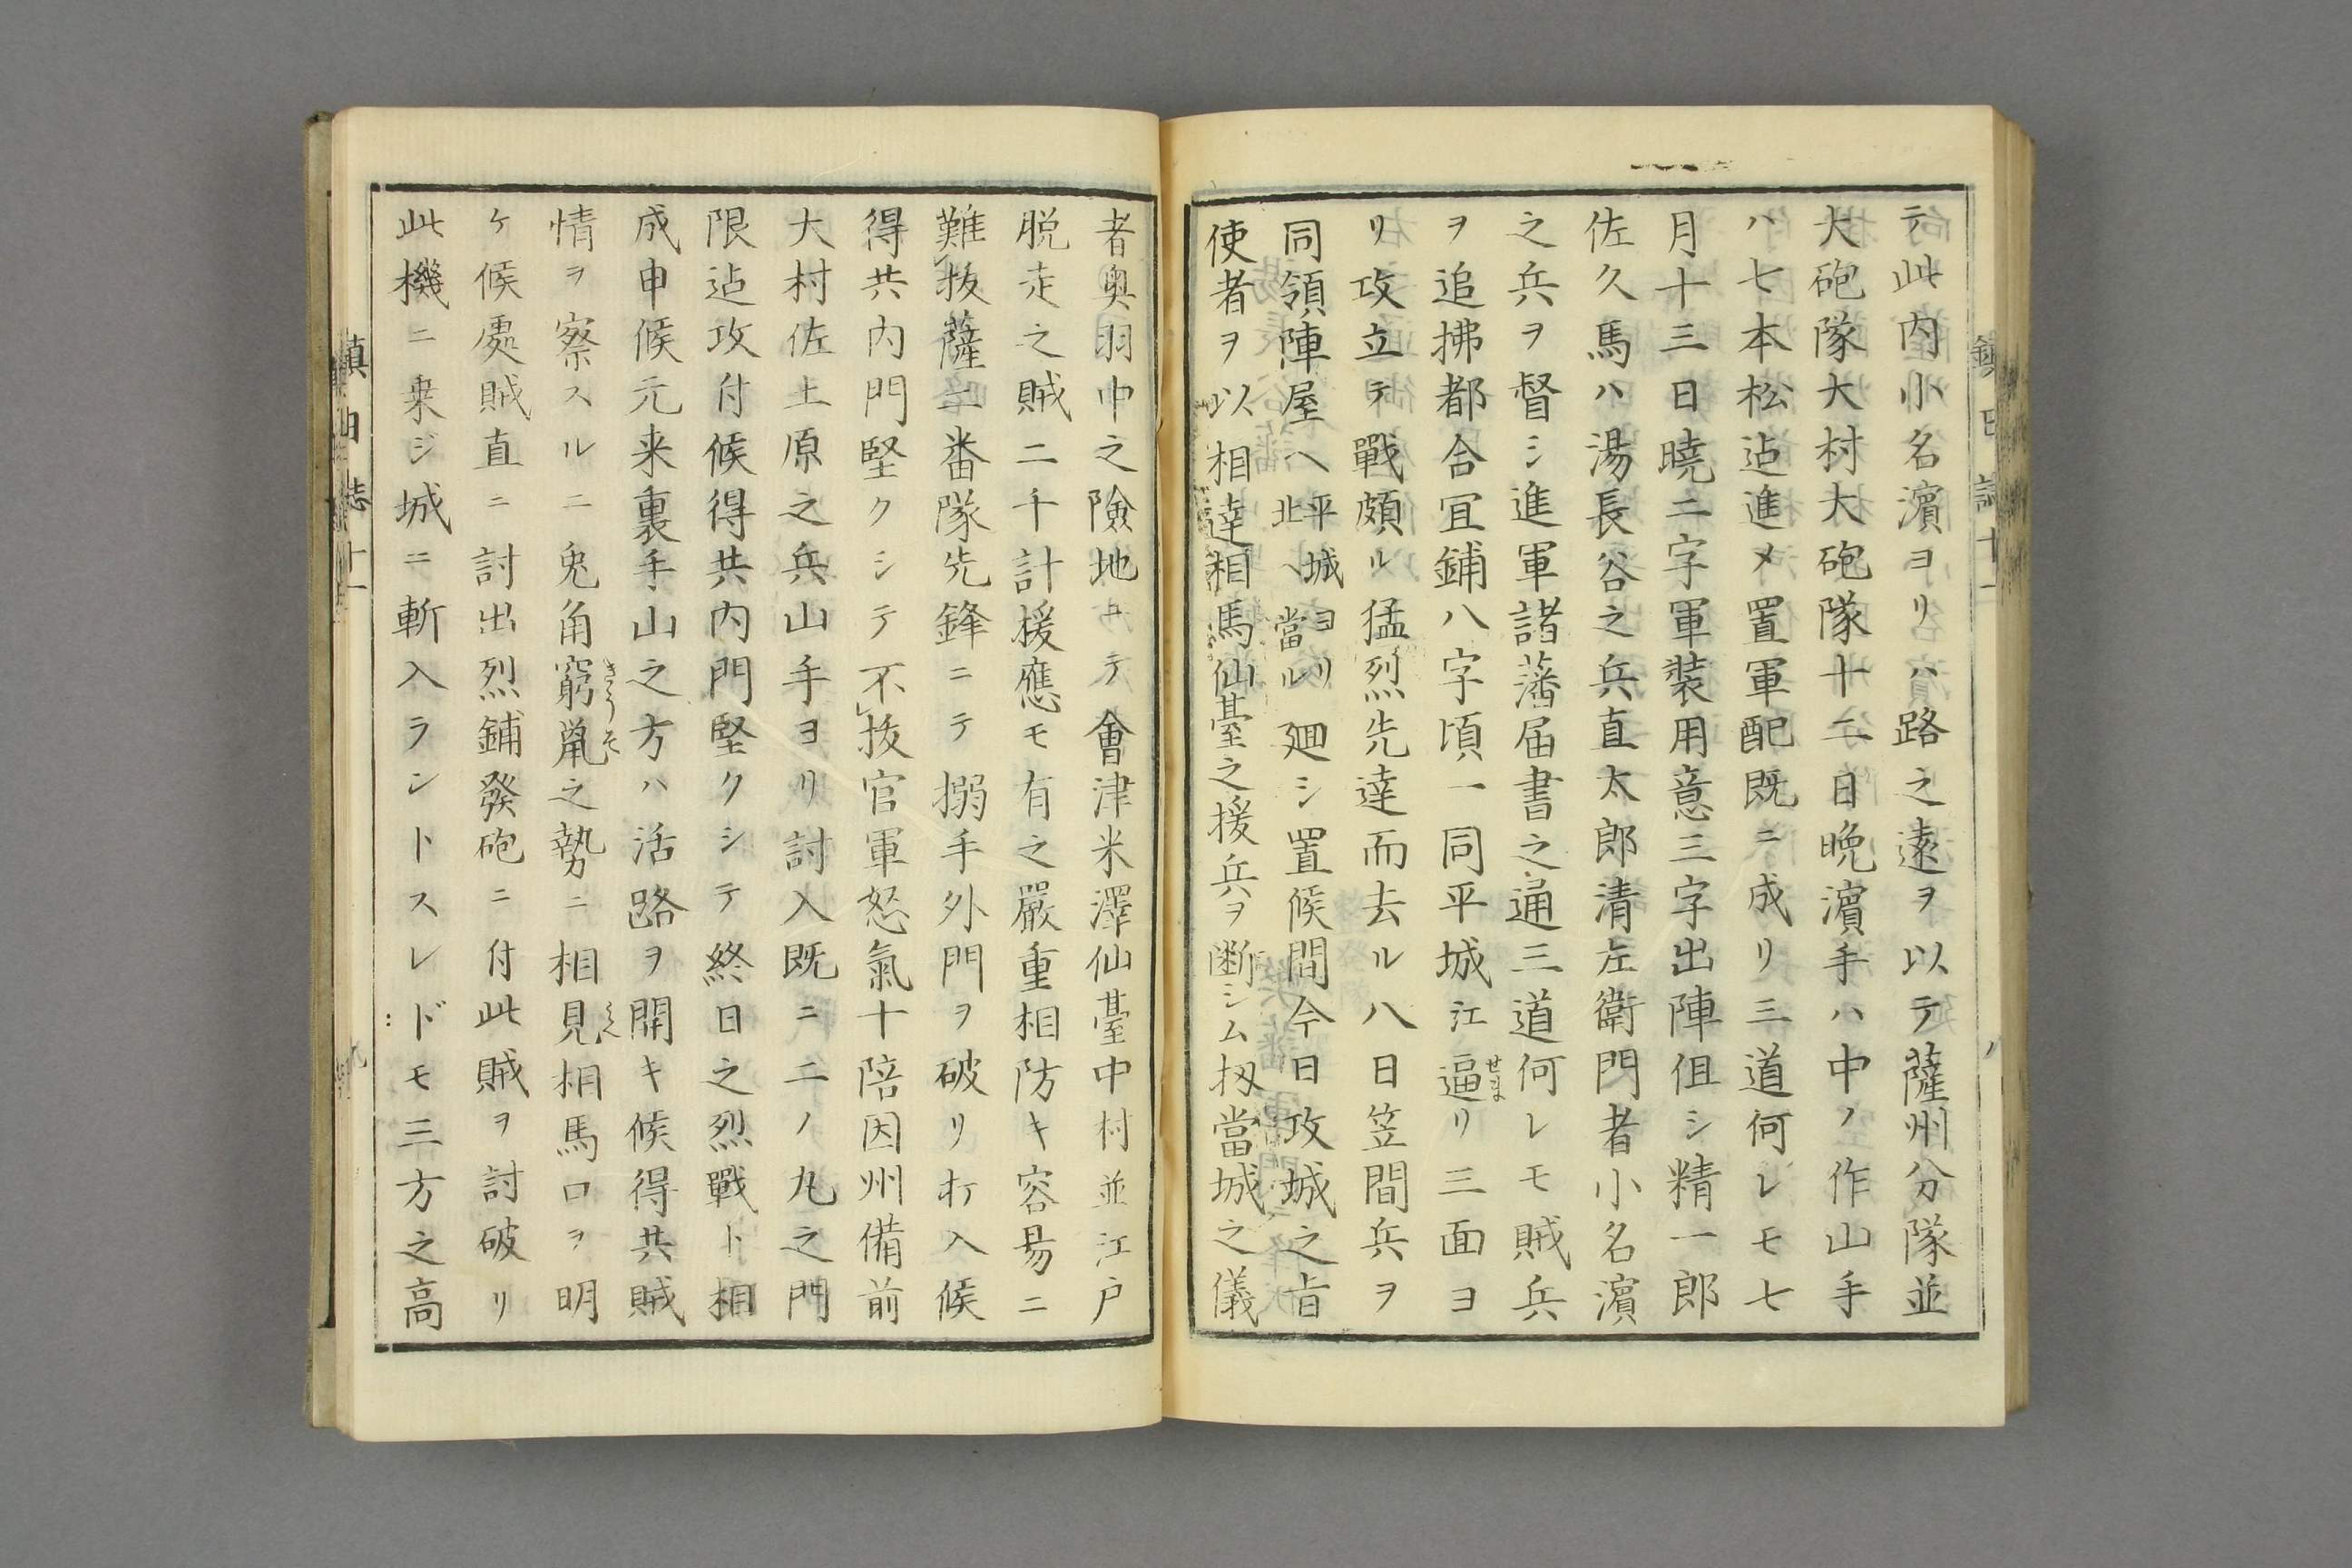 テ此内小名濵ヨリハ路之遠ヲ以テ薩州分隊並
大砲隊大村大砲隊十二日晩濵手ハ中ノ作山手
ハ七本松迠進メ置軍配既ニ成リ三道何レモ七
月十三日曉二字軍装用意三字出陣但シ精一郎
佐久馬ハ湯長谷之兵直太郎清左衛門者小名濵
之兵ヲ督シ進軍諸藩届書之通三道何レモ賊兵
ヲ追拂都合冝鋪八字頃一同平城江逼リ三面ヨ
せま
リ攻立テ戰頗ル猛烈先達而去ル八日笠間兵ヲ
同領陣屋ヘ平城ヨリ北ヘ當ル廻シ置候間今日攻城之旨
使者ヲ以相達相馬仙臺之援兵ヲ断シム扨當城之儀
者奥羽中之險地ニテ會津米澤仙臺中村並江戸
脱走之賊二千計援應モ有之嚴重相防キ容昜ニ
難抜薩二番隊先鋒ニテ搦手外門ヲ破リ打入候
得共内門堅クシテ不抜官軍怒氣十陪因州備前
大村佐土原之兵山手ヨリ討入既ニ二ノ丸之門
限迠攻付候得共内門堅クシテ終日之烈戰ト相
成申候元来裏手山之方ハ活路ヲ開キ候得共賊
情ヲ察スルニ兎角窮鼡之勢ニ相見相馬口ヲ明
きうそ
ケ候處賊直ニ討出烈鋪發砲ニ付此賊ヲ討破リ
此機ニ乗ジ城ニ斬入ラントスレドモ三方之高